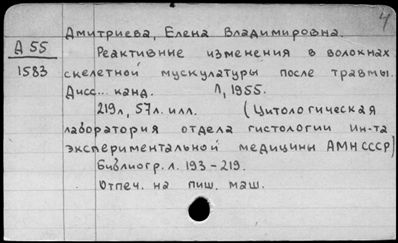 4
Дмитриева, Елена Владимировна.
Д 55
1583
Реактивные изменения в волокнах
скелетной мускулатуры после травмы.
Дисс... канд. Л, 1955.
219л, 57л. илл. (Цитологическая
лаборатория отдела гистологии Ин-та
экспериментальной медицины АМН СССР)
Библиогр. л. 193-219.
Отпеч. на пиш. маш.